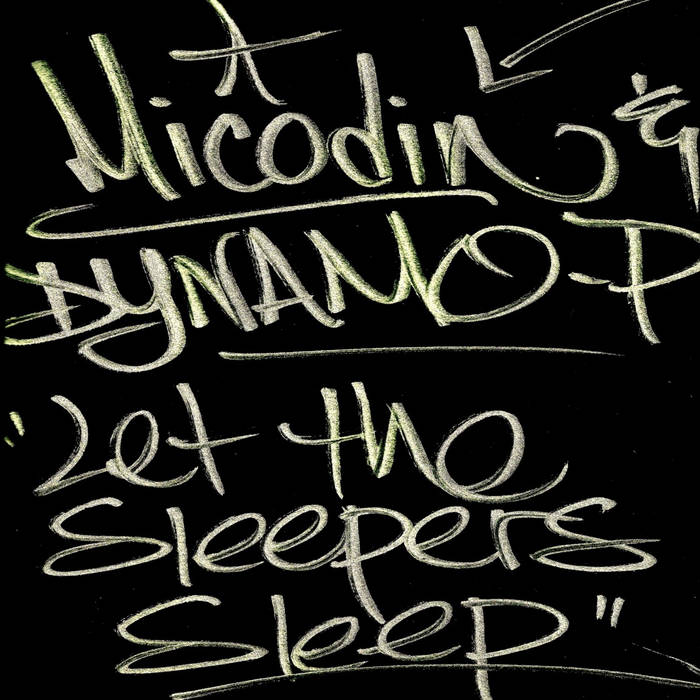 Micodin &
DYNAMO-P
"Let the
Sleepers
Sleep"